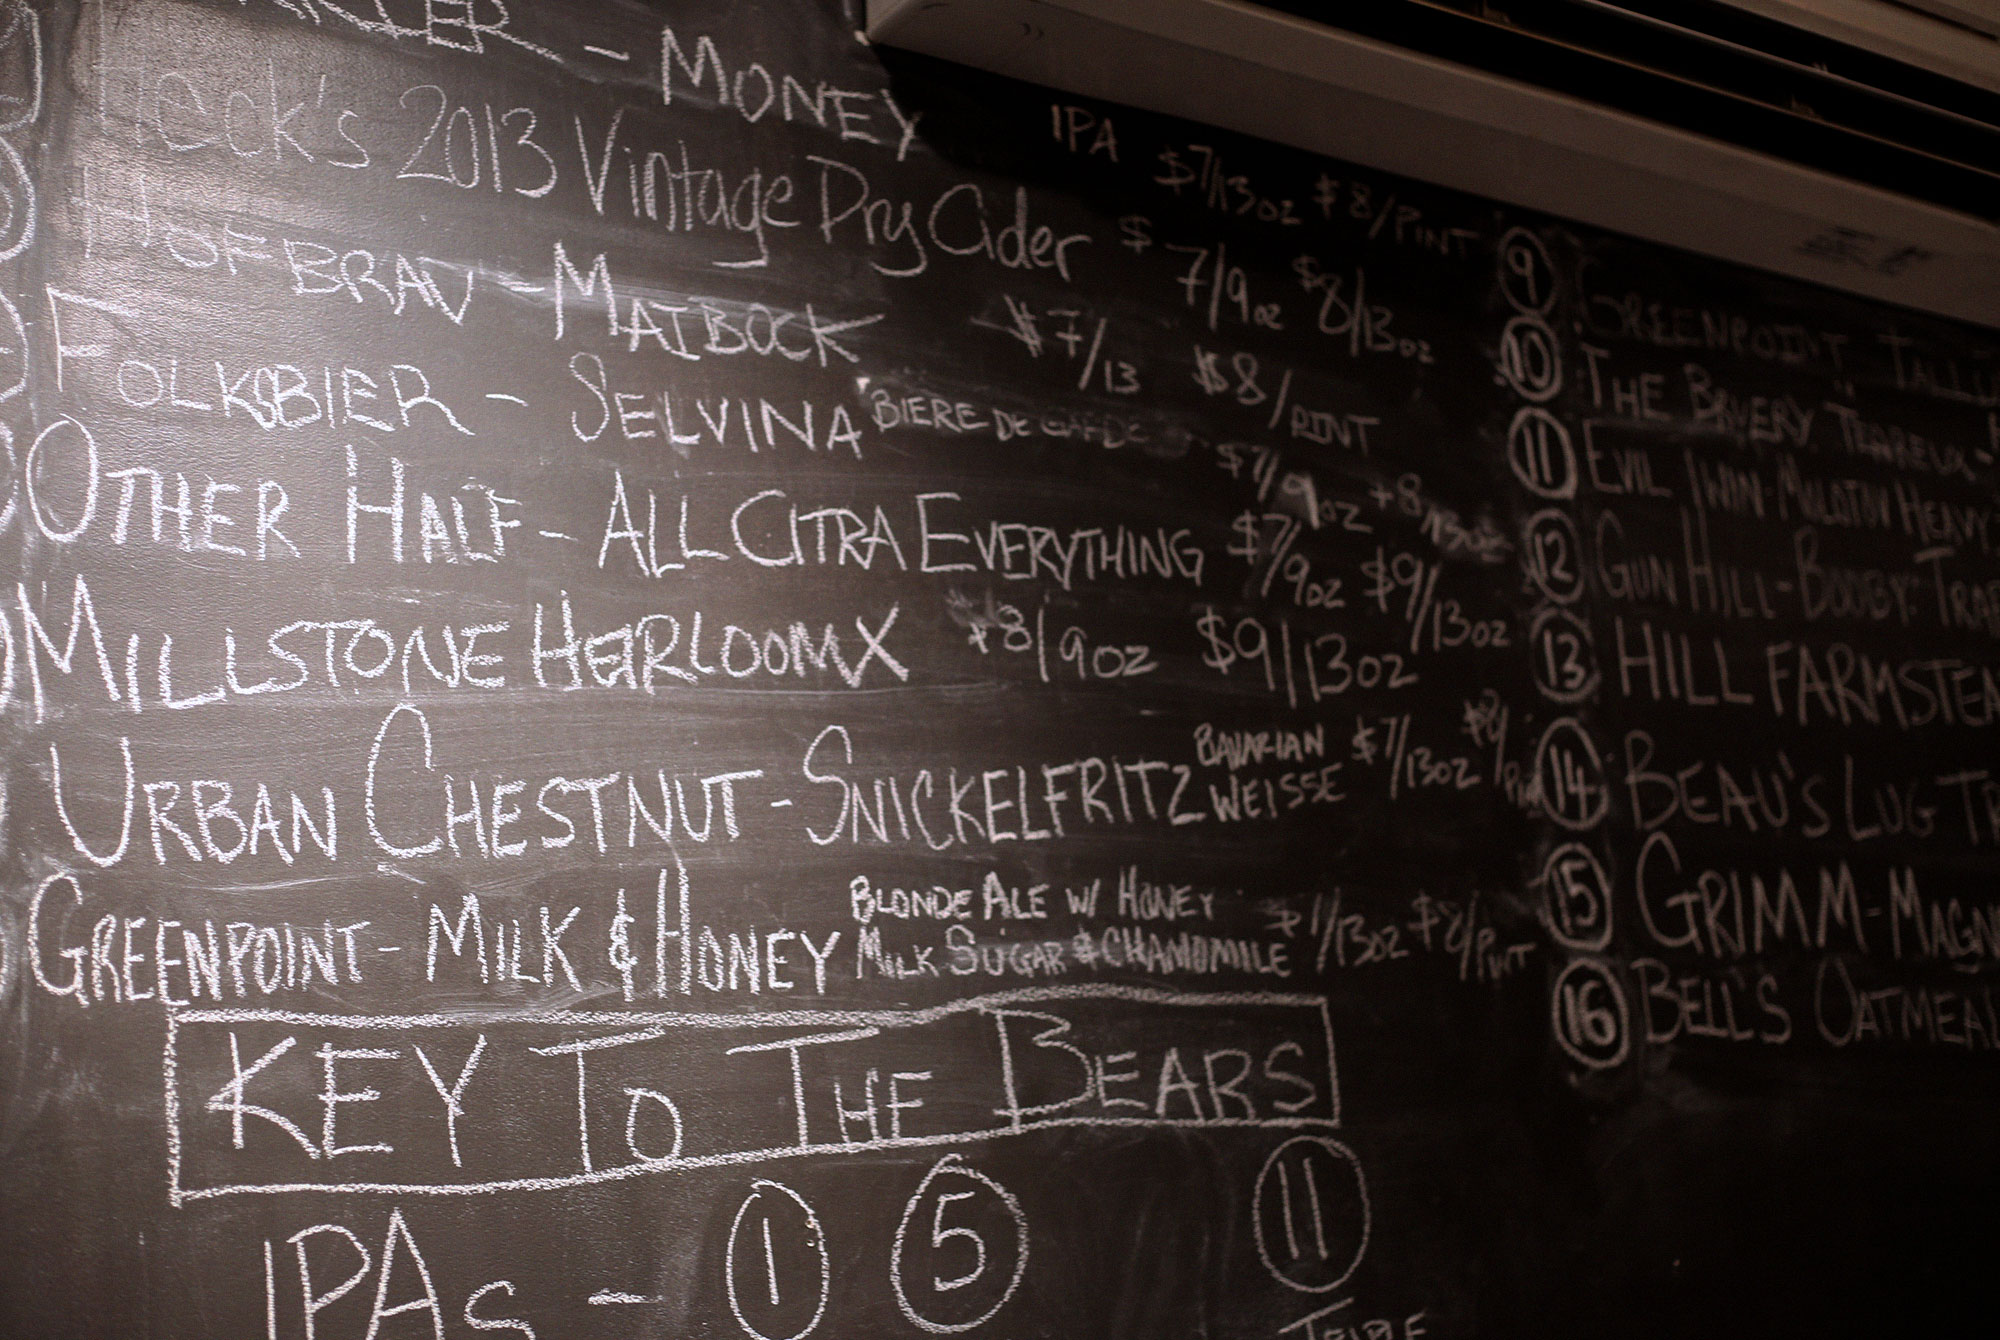 - MONEY IPA $7/13oz $8/PINT
2013 Vintage Dry Cider $7/9oz $8/13oz
HOFBRAU - MAIBOCK $7/13 $8/PINT
FOLKSBIER - SELVINA BIERE DE GARDE $7/9oz $8/13oz
OTHER HALF - ALL CITRA EVERYTHING $7/9oz $9/13oz
MILLSTONE HEIRLOOM X $8/9oz $9/13oz
URBAN CHESTNUT - SNICKELFRITZ BAVARIAN WEISSE $7/13oz $8/
GREENPOINT - MILK & HONEY BLONDE ALE W/ HONEY
MILK SUGAR & CHAMOMILE $7/13oz $8/PINT
KEY TO THE BEARS
IPAs - 1 5 11
TRIPLE
9 GREENPOINT
10 THE BRUERY
11 EVIL TWIN - HEAVY
12 GUN HILL - BOOBY TRAP
13 HILL FARMSTEA
14 BEAU'S LUG TR
15 GRIMM - MAGN
16 BELL'S OATMEAL